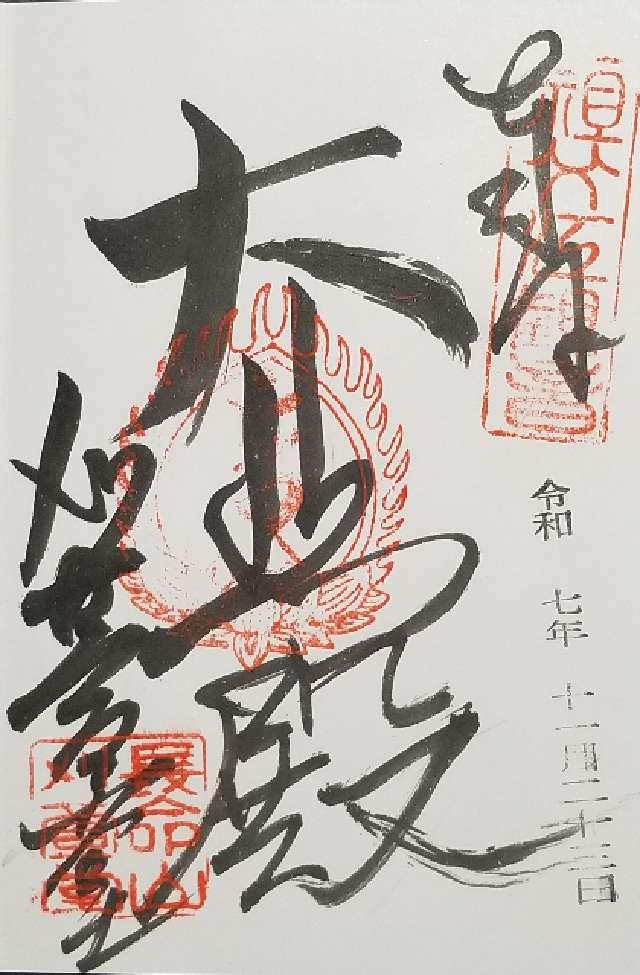 奉拝
令和 七年 十一月二十三日
大悲殿
刈萱堂
長命山
刈萱堂